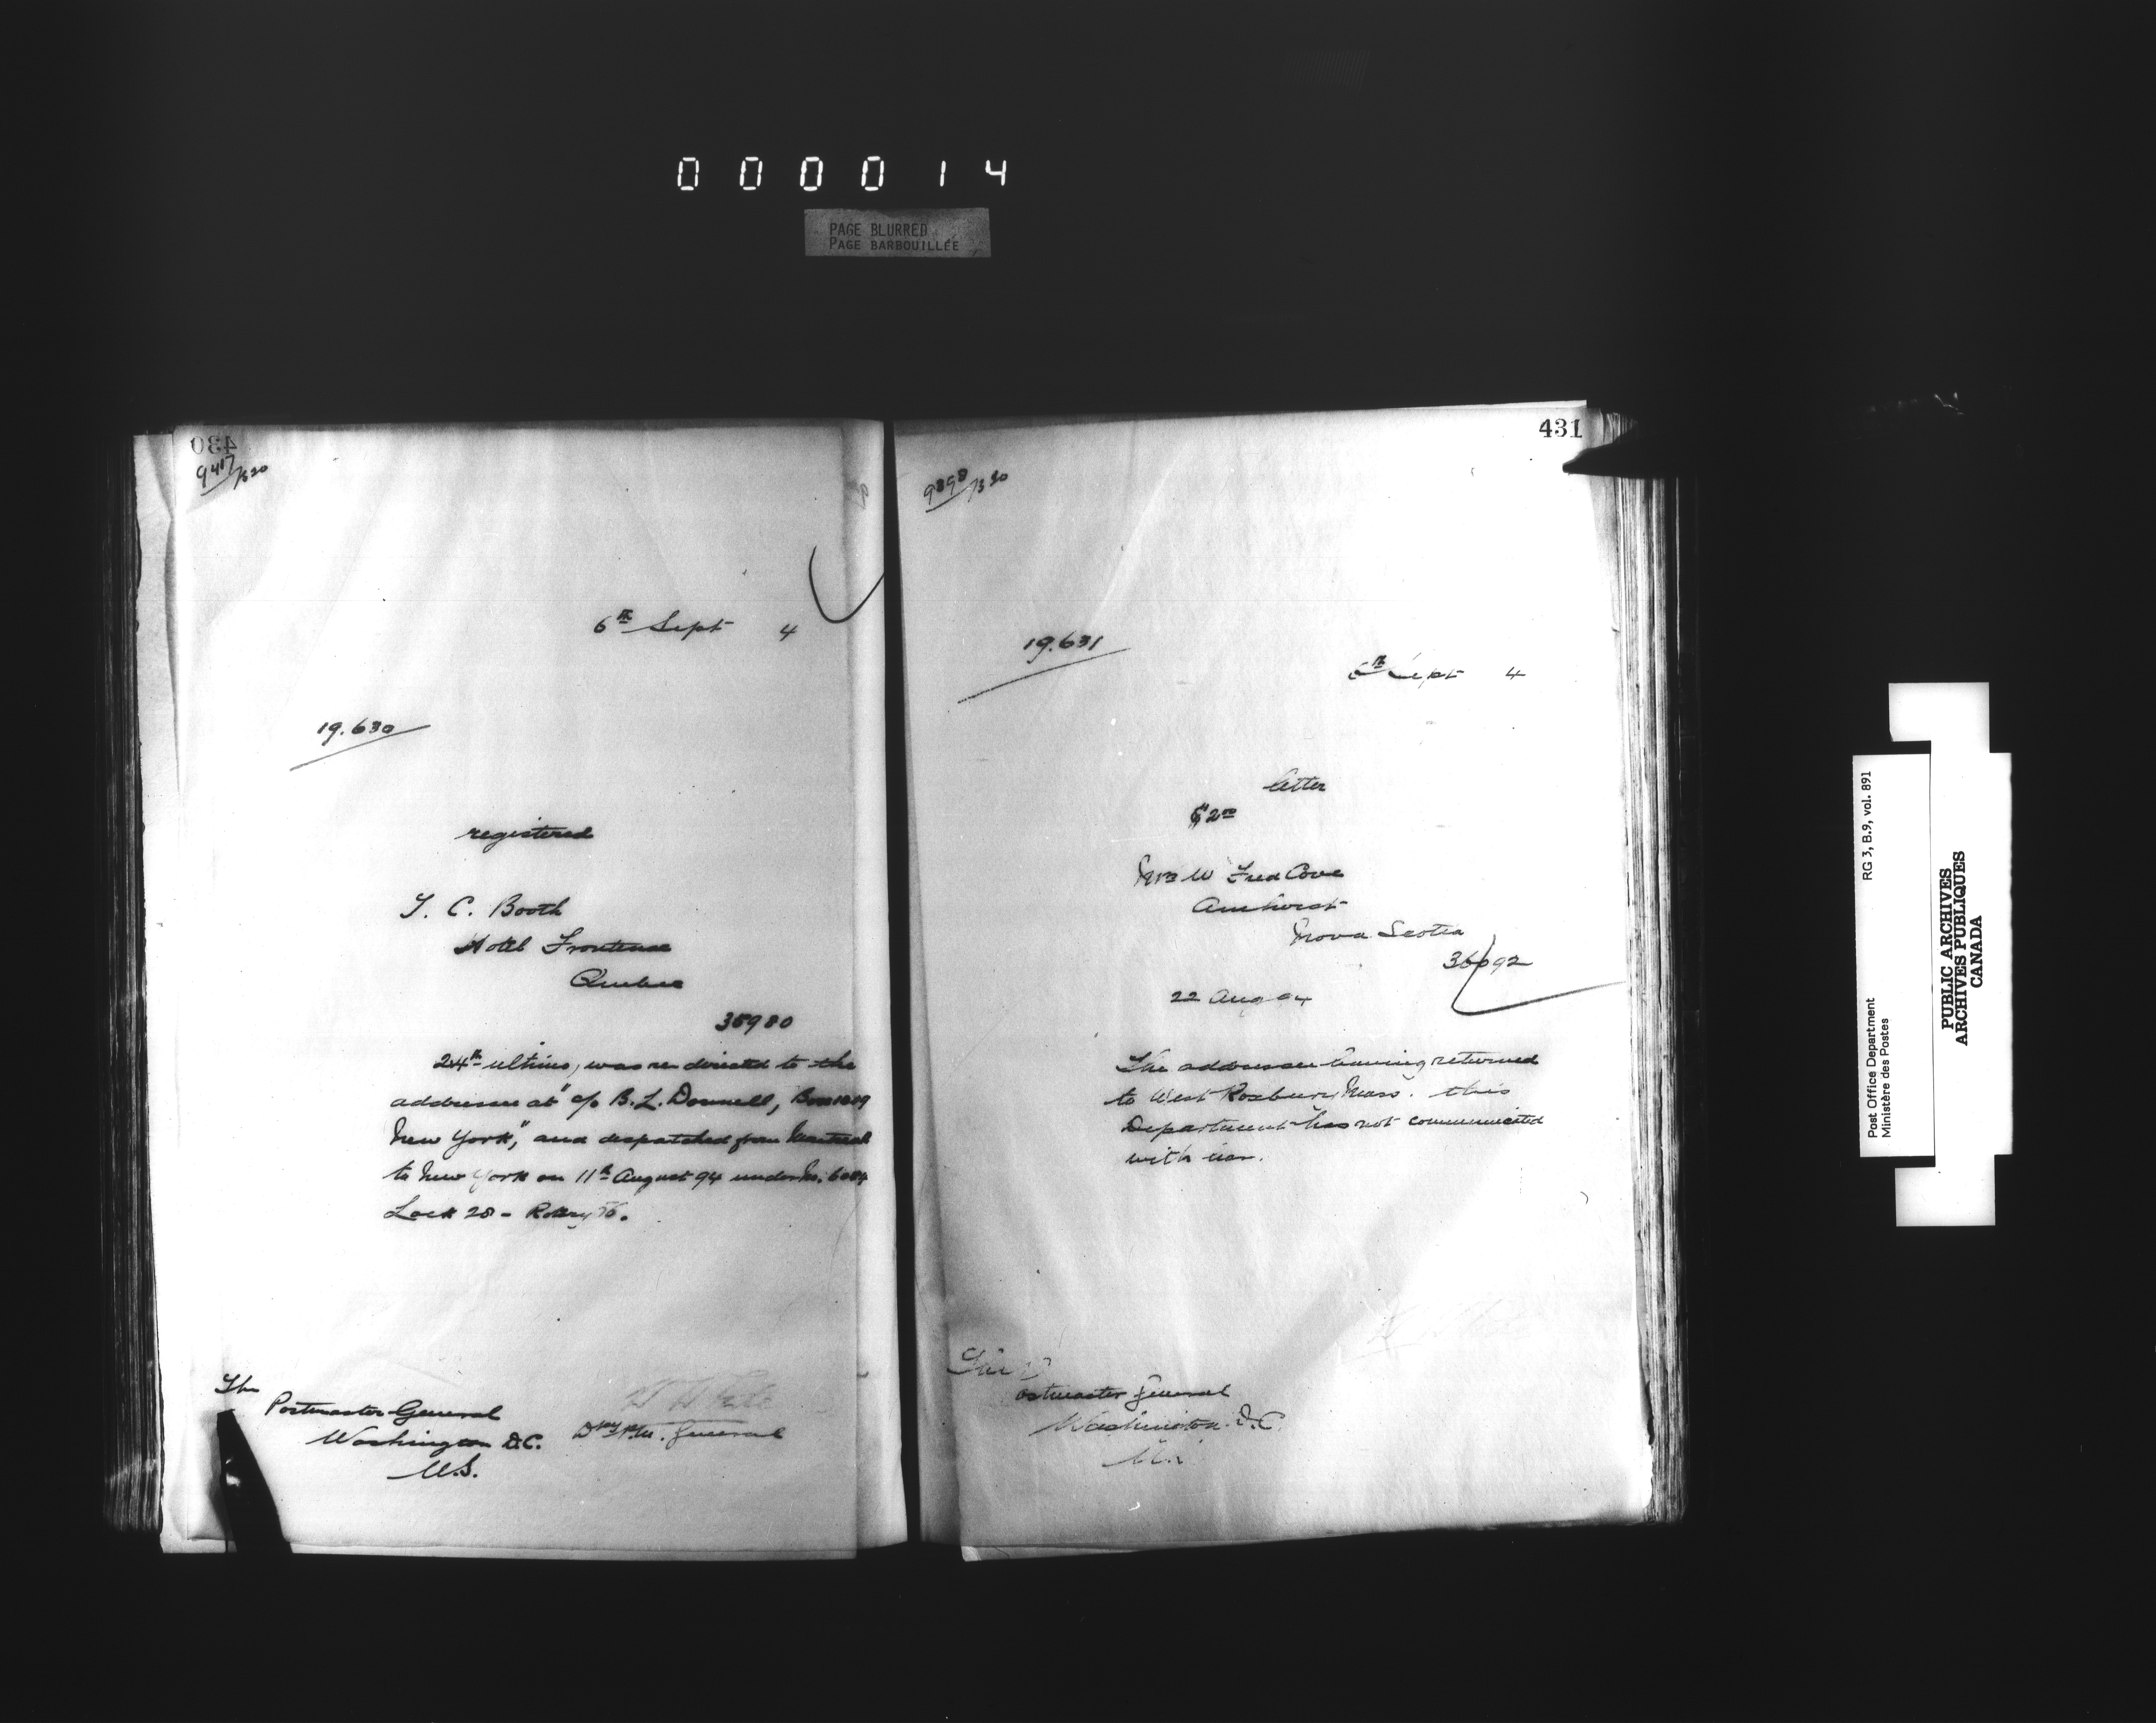 000014
PAGE BLURRED
PAGE BARBOUILLÉE
430
9417/320
6th Sept 4
19.630
registered
T. C. Booth
Hotel Frontenac
Quebec
35980
24th ultimo, was re directed to the
addressee at "c/o B. L. Donnell, Box 1819
New York," and despatched from Montreal
to New York on 11th August 94 under No. 6084
Lock 28 - Rotary
The
Postmaster General
Washington D.C.
U.S.
Dpy P.M. General
431
9898/320
19.631
6th Sept 4
letter
$2.00
Mrs W Fred Cove
Amherst
Nova Scotia
36092
22 Aug 94
The addressee having returned
to West Roxbury, Mass. this
Department has not communicated
with
The
Postmaster General
Washington. D.C.
U.S.
Post Office Department
Ministère des Postes
RG 3, B.9, vol. 891
PUBLIC ARCHIVES
ARCHIVES PUBLIQUES
CANADA